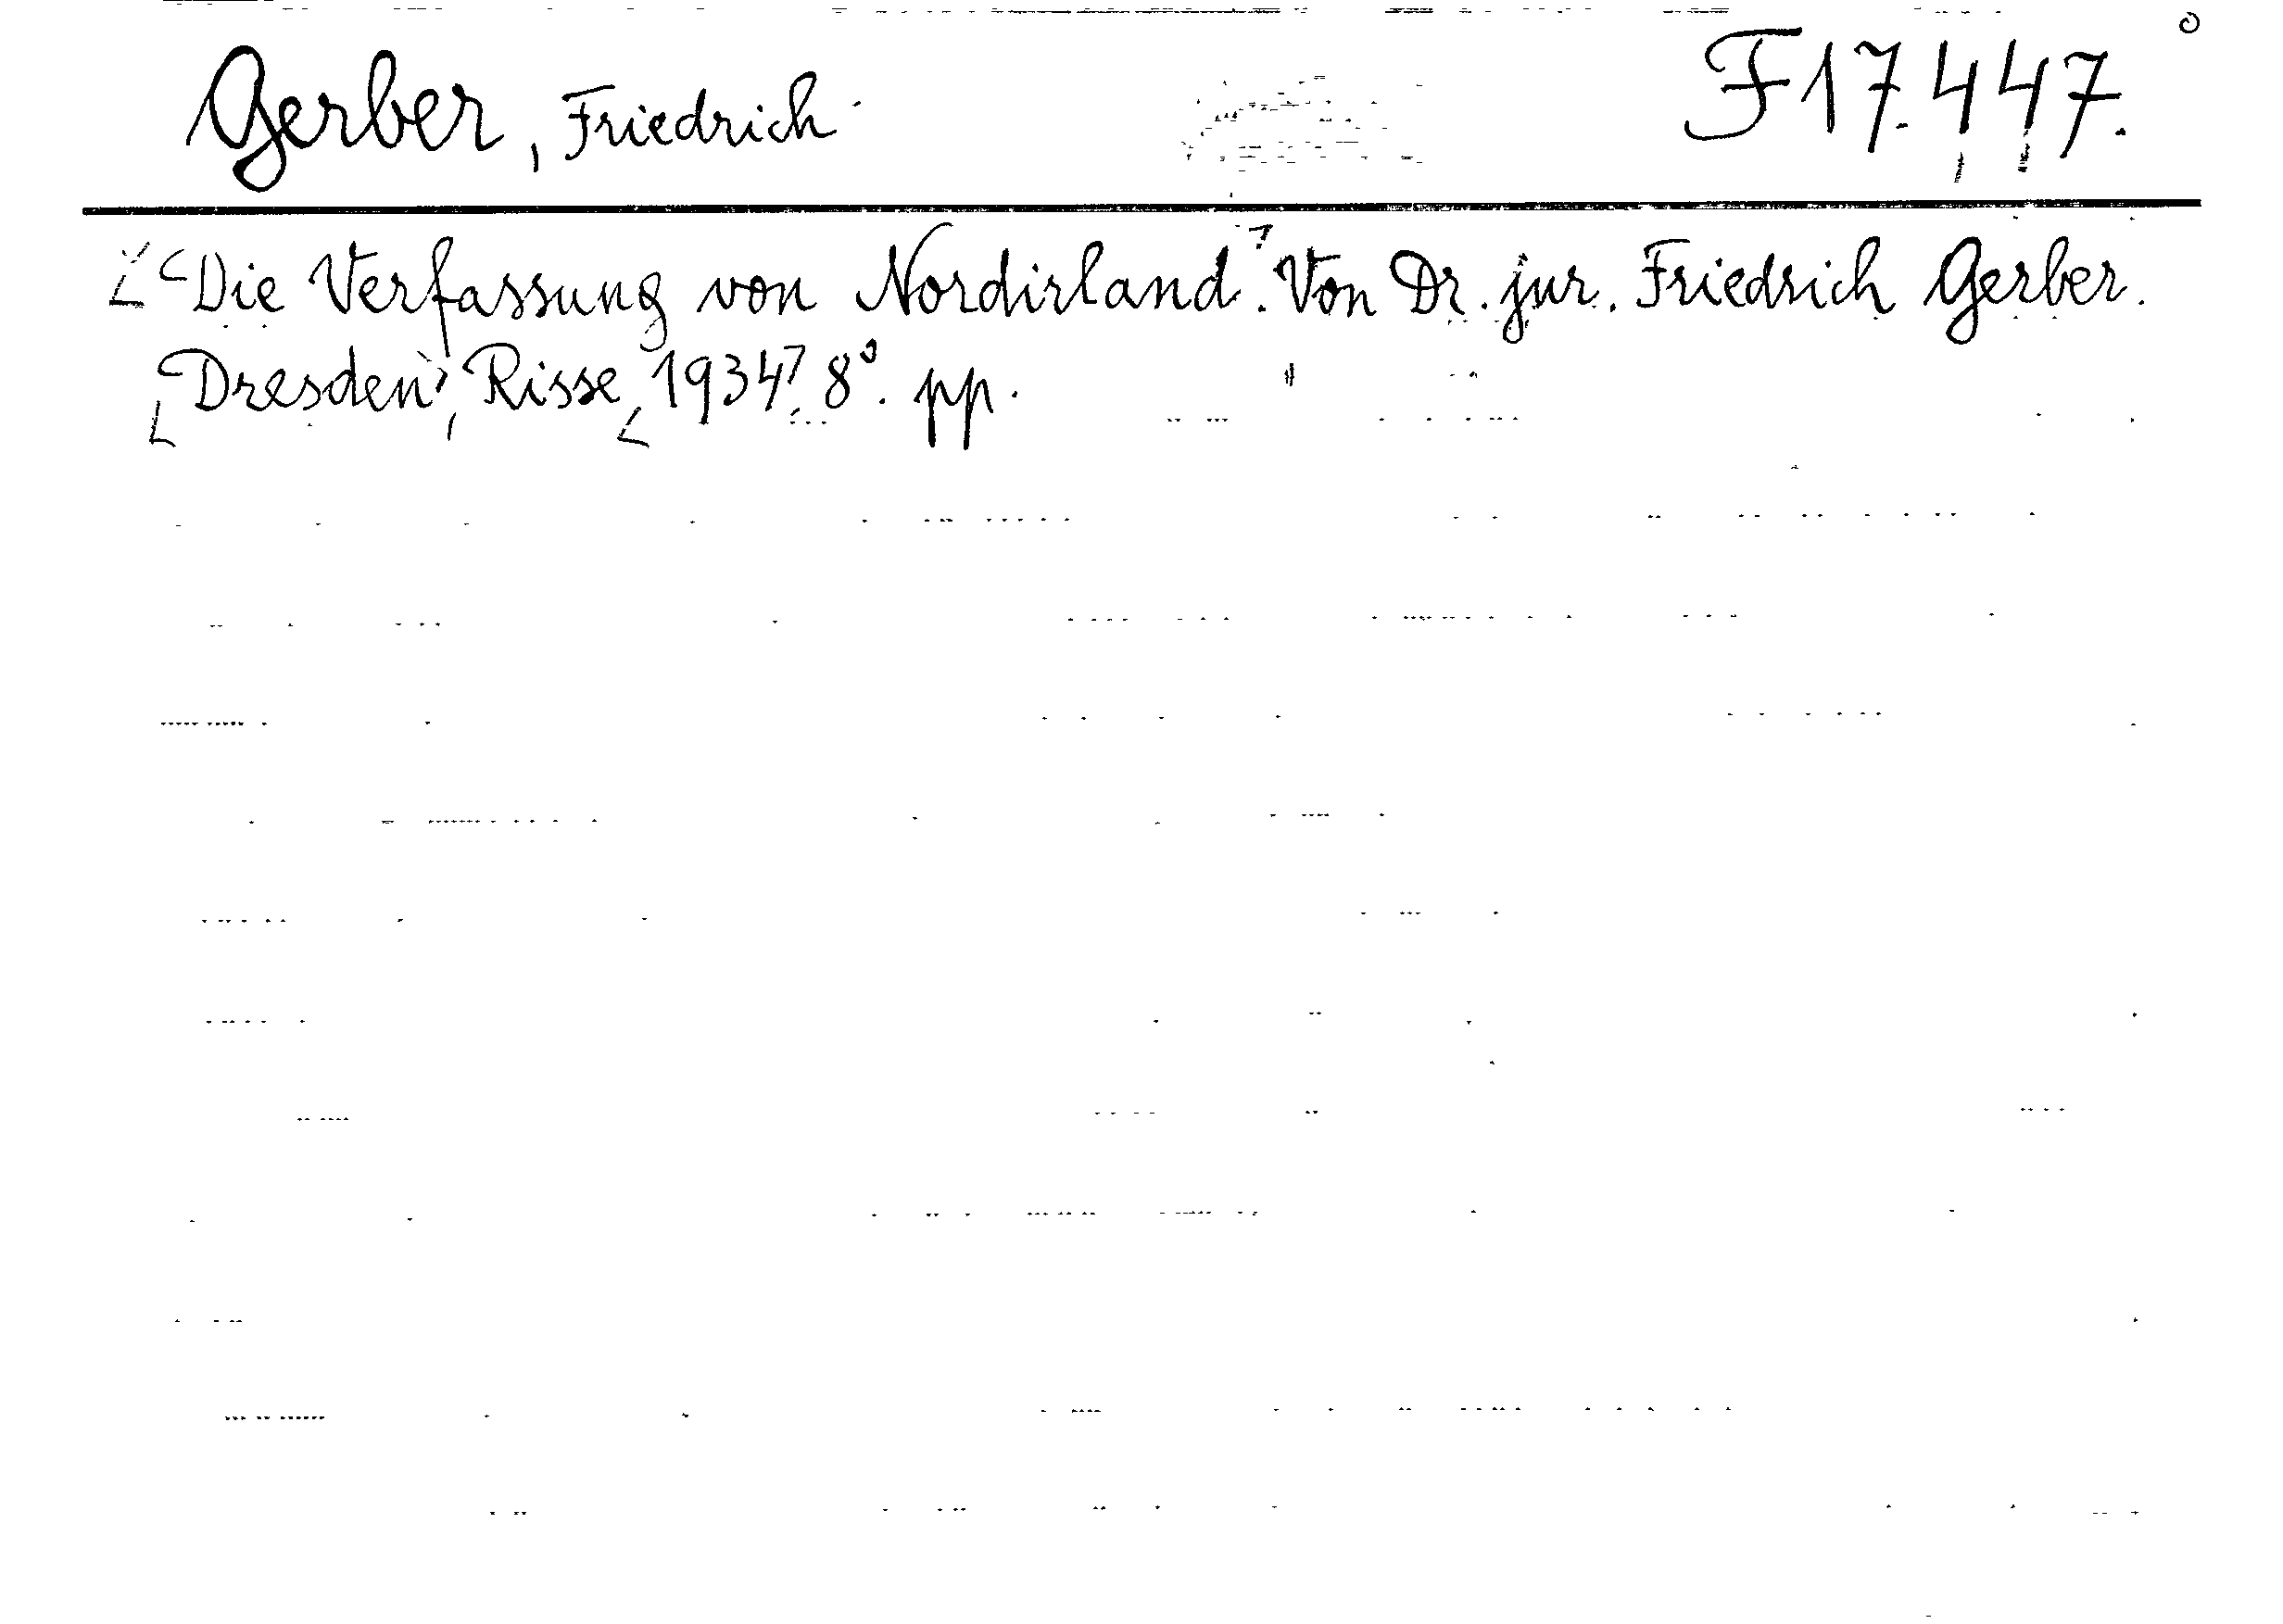 Gerber, Friedrich F 17.447.
Die Verfassung von Nordirland. Von Dr. jur. Friedrich Gerber.
Dresden, Risse, 1934. 8°. pp.